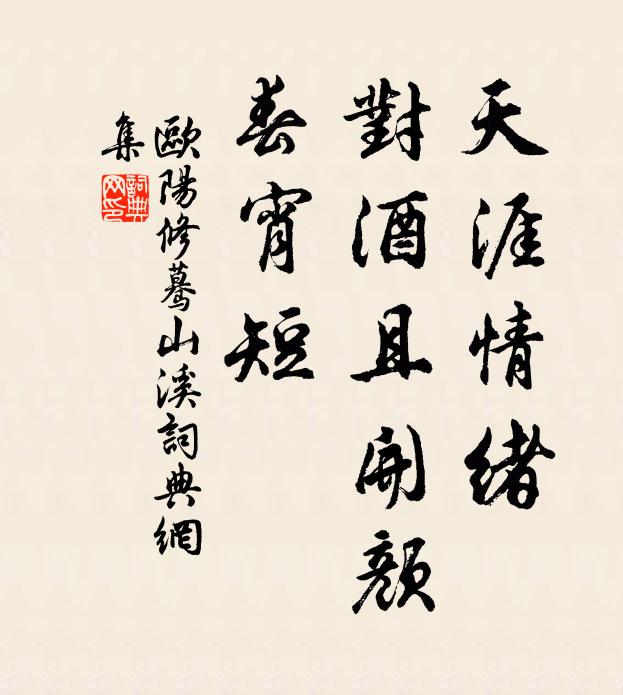 天涯情緒
對酒且開顏
春宵短
歐陽修驀山溪詞典網
集
詞典網印